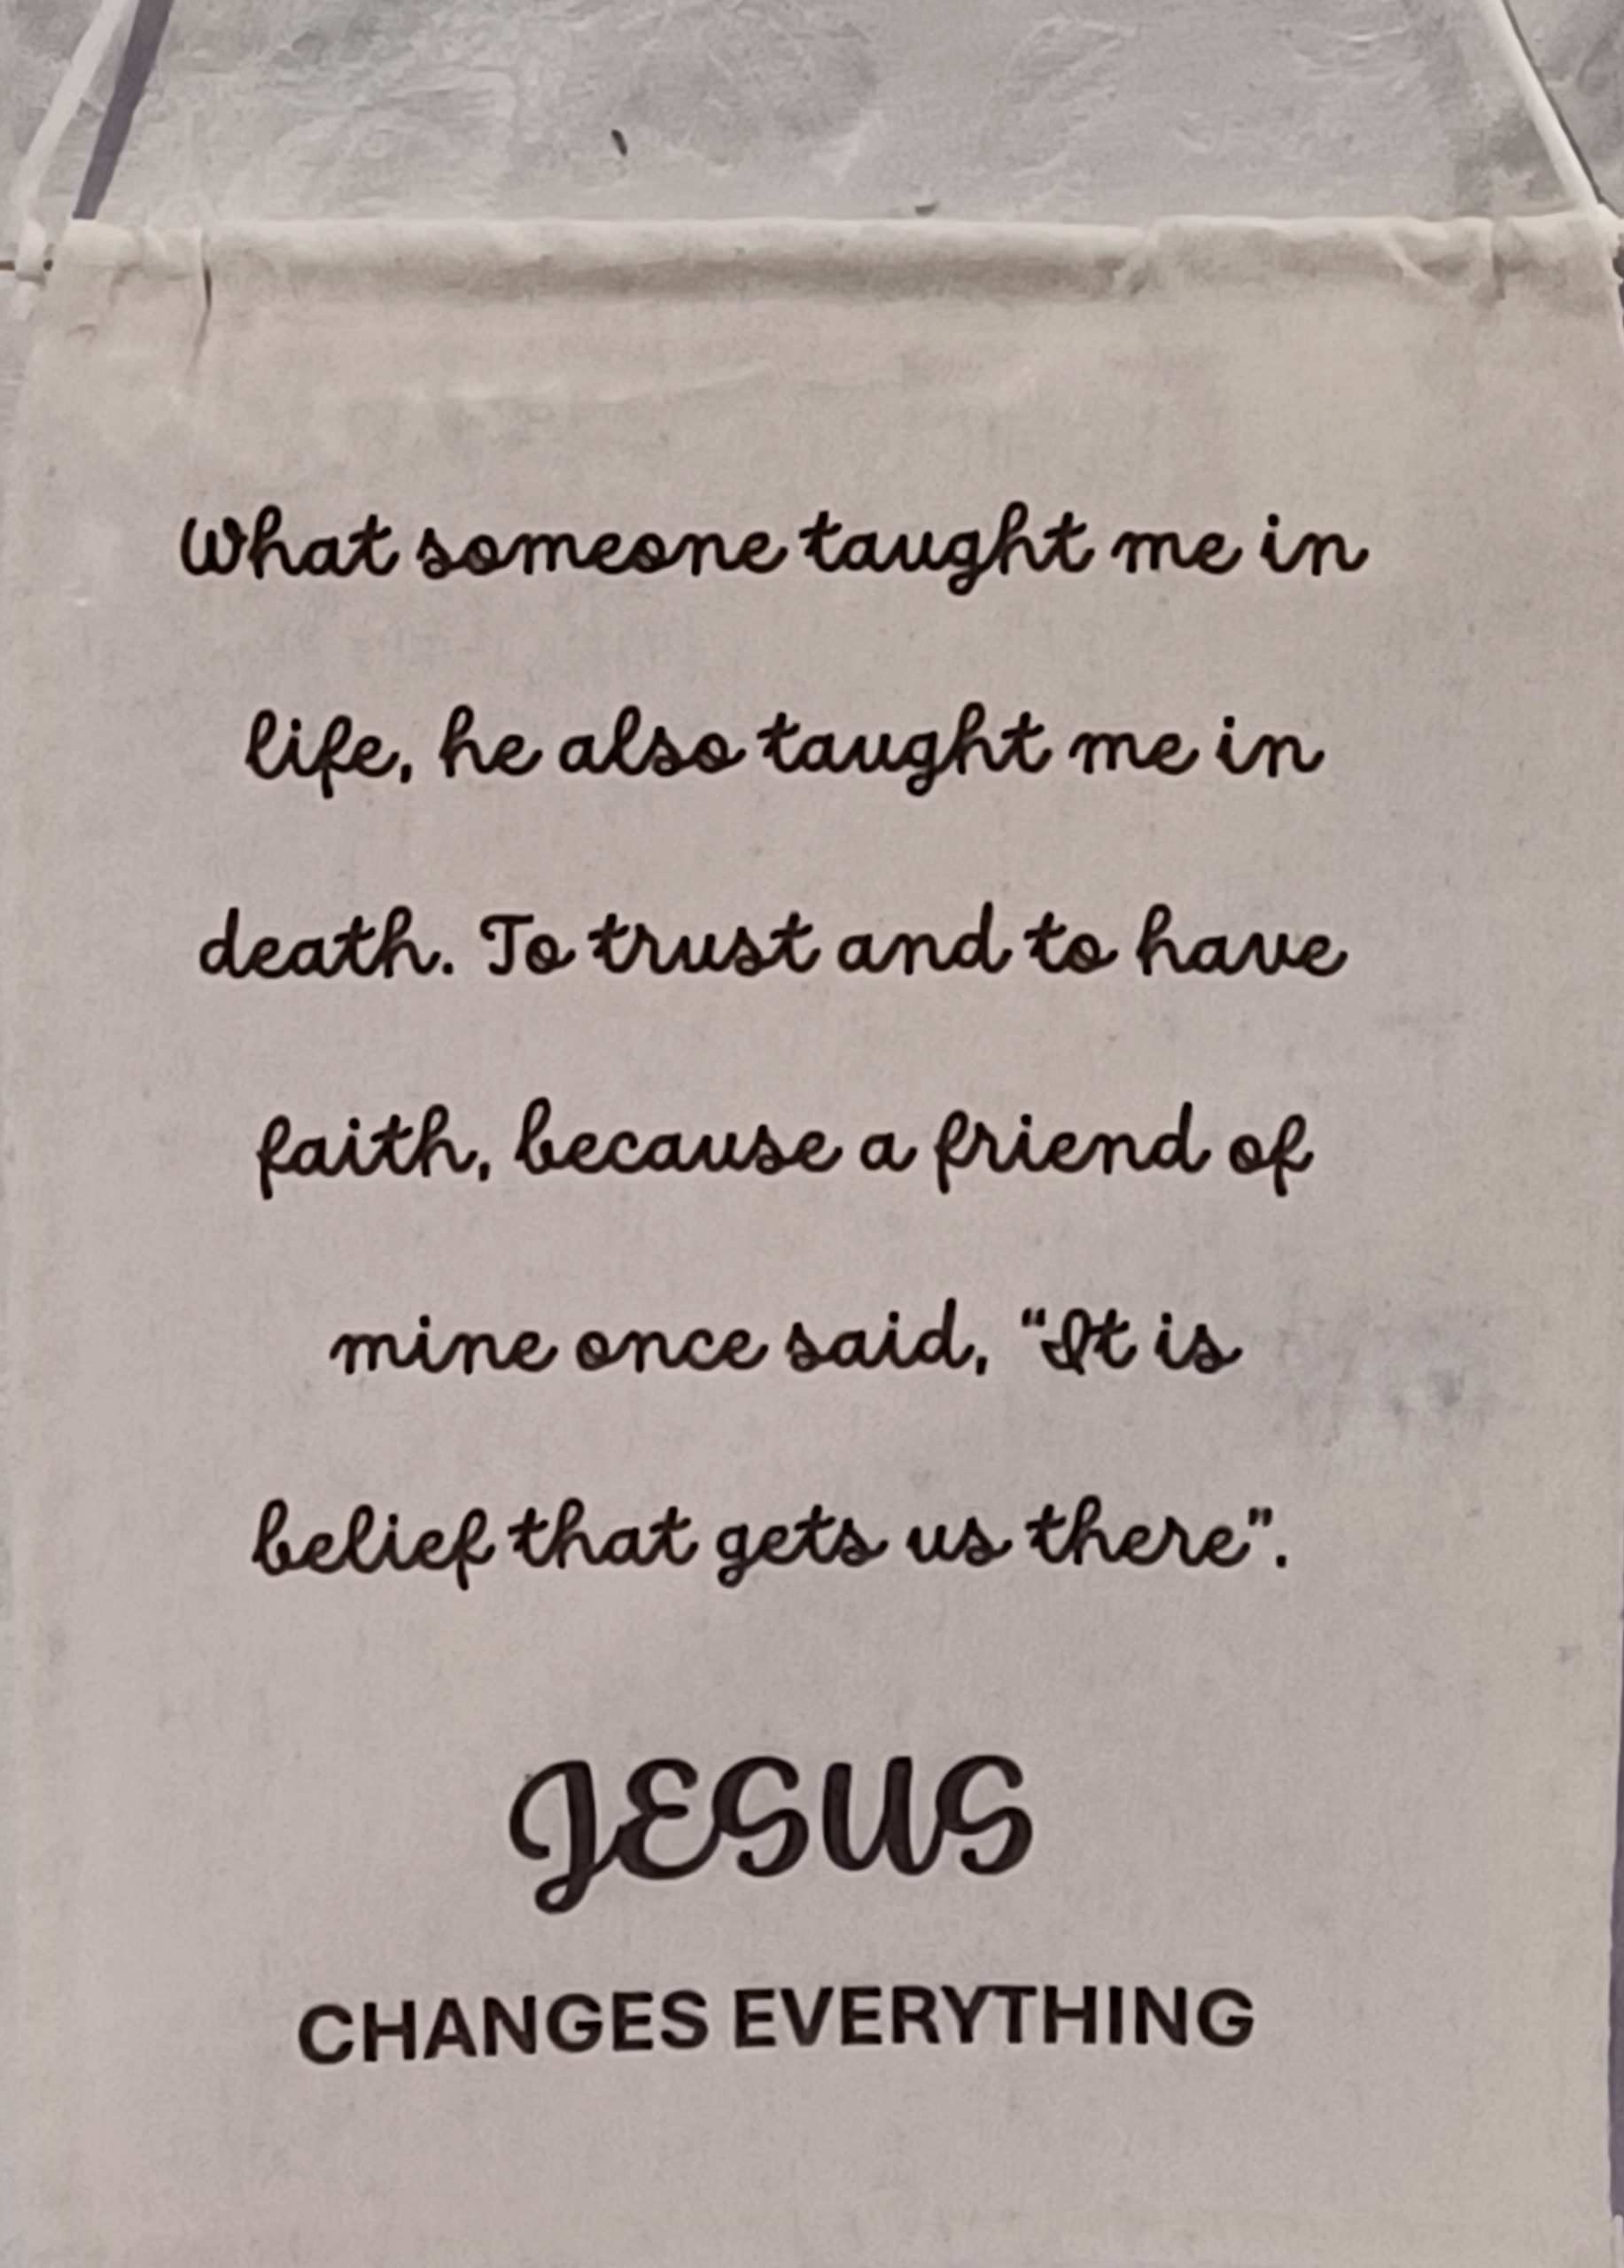 What someone taught me in
life, he also taught me in
death. To trust and to have
faith, because a friend of
mine once said, "It is
belief that gets us there".
JESUS
CHANGES EVERYTHING